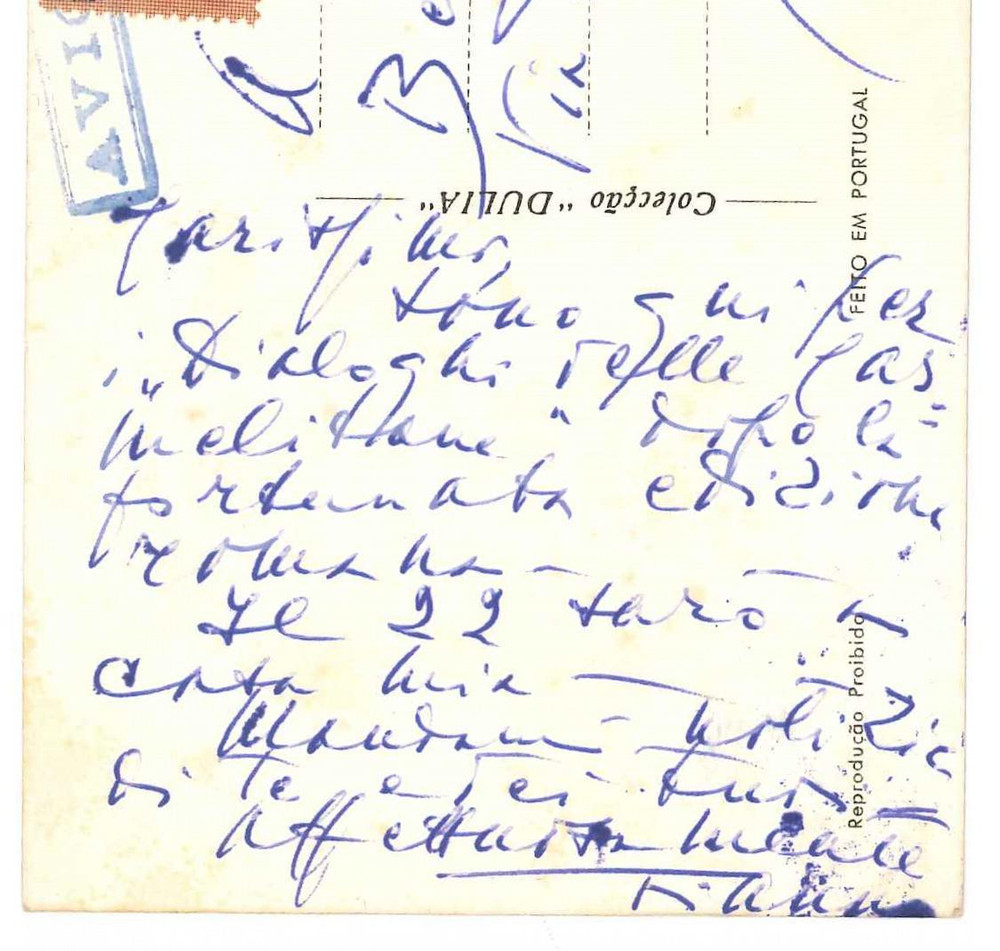 AVIO
B
Via
Colecção "DULIA"
FEITO EM PORTUGAL
Carissimo,
sono qui per
i „Dialoghi delle Car=
melitane" dopo la
fortunata edizione
romana —
Il 22 sarò a
casa mia —
Mandami notizie
di te e dei tuoi
Affettuosamente
Reprodução Proibida